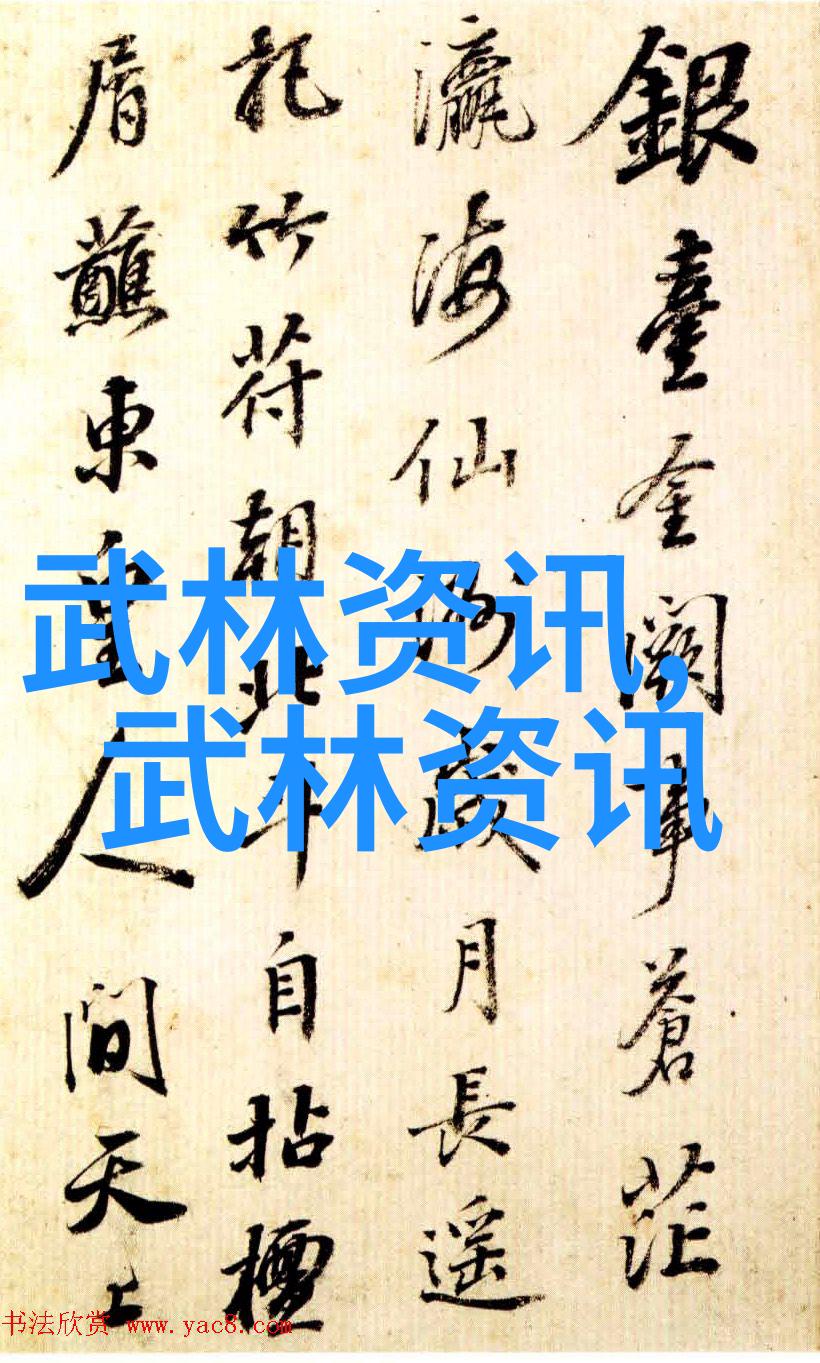 銀臺金闕事蒼茫
瀛海仙歲月長遥
記竹符朝北斗自拈檀
屑蘸東皇人間天上
武林资讯,
武林资讯
书法欣赏 www.yac8.com